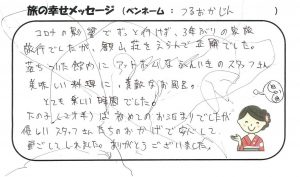 旅の幸せメッセージ（ペンネーム：つるおかじん）
コロナの影響でずっと行けず、3年ぶりの家族
旅行でしたが、御山荘をえらんで正解でした。
落ちついた館内に、アットホームなふんいきのスタッフさん
美味しい料理に、素敵なお風呂。
とても楽しい時間でした。
たの子（2才半）は初めてのお泊まりでしたが
優しいスタッフさんたちのおかげで安心して
過ごしてしまれました。ありがとうございました。